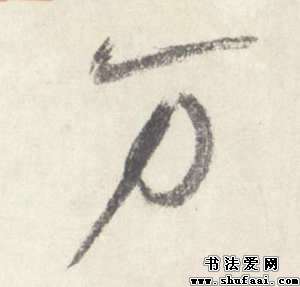 万
书法爱网
www.shufaai.com